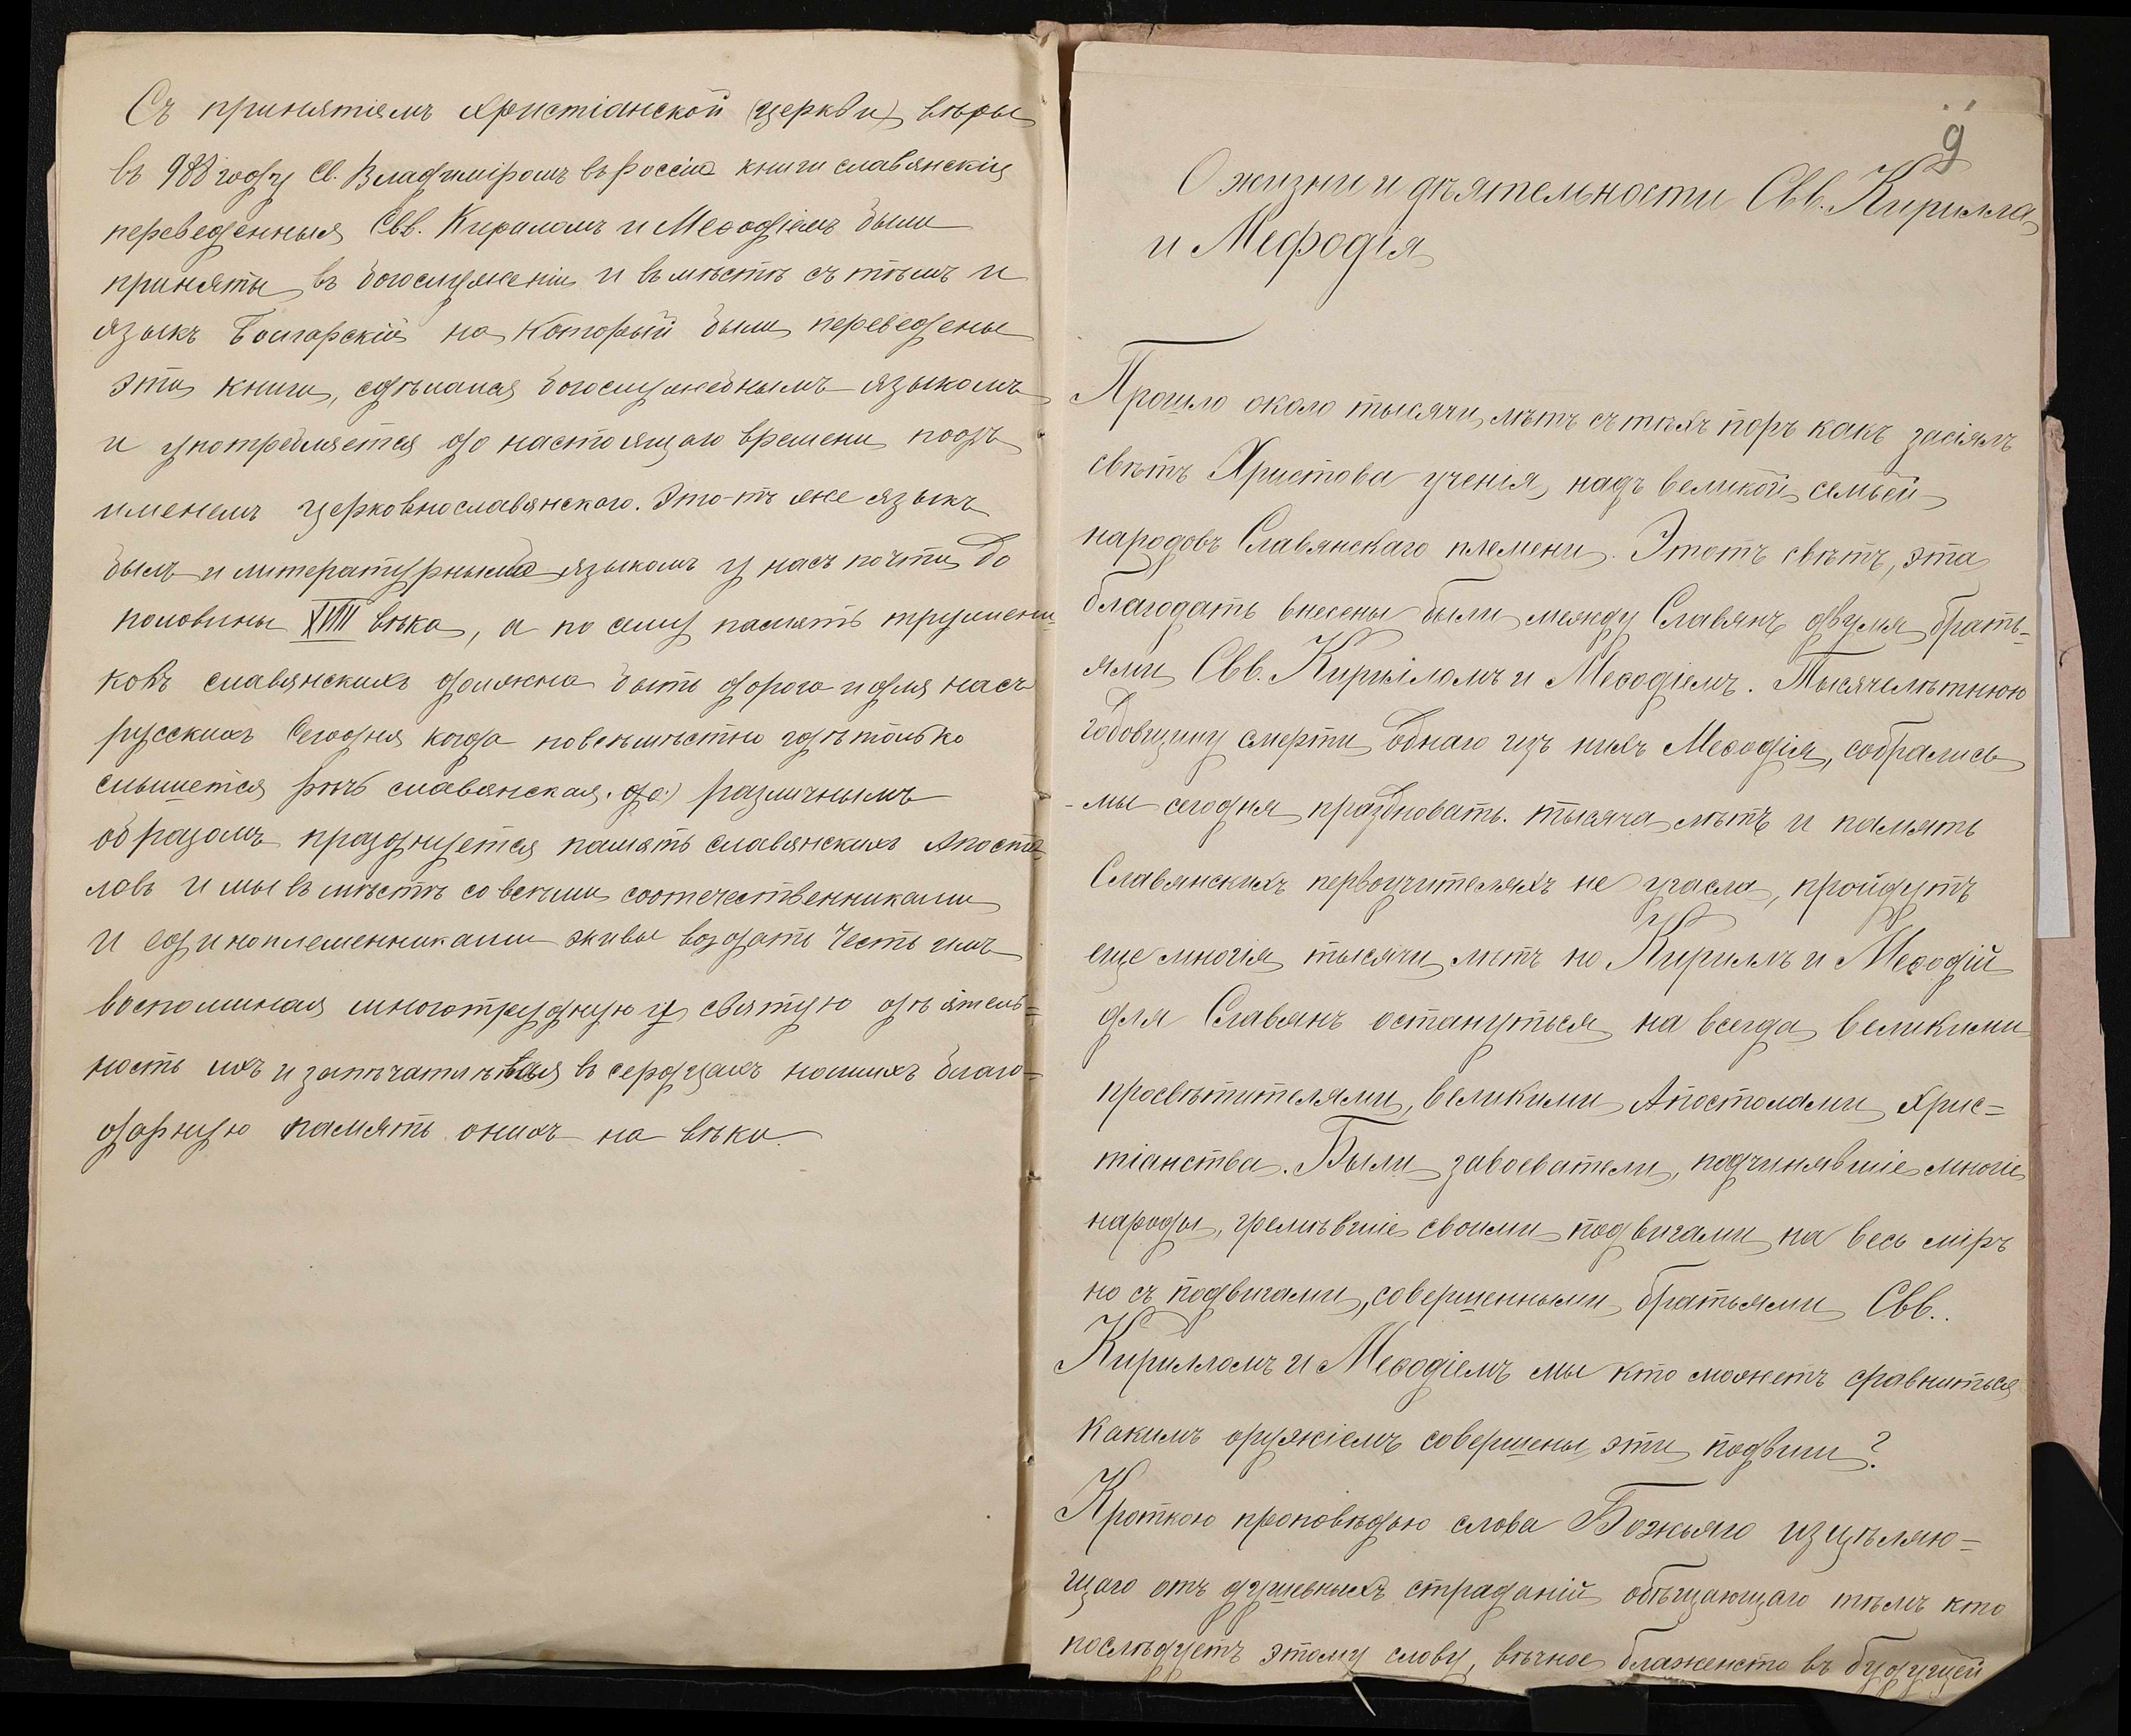 Съ принятіемъ христіанской (церкви) вѣры
въ 988 году Св. Владиміромъ въ Россіи книги славянскія
переведенныя Свв. Кириломъ и Меѳодіемъ были
приняты въ богослуженіи и вмѣстѣ съ тѣмъ и
языкъ Болгарскій на который были переведены
эти книги, сдѣлался богослужебнымъ языкомъ
и употребляется до настоящаго времени подъ
именемъ церковнославянскаго. Это-тъ же языкъ
былъ и литературнымъ языкомъ у насъ почти до
половины XVIII вѣка, а по сему память тружени-
ковъ славянскихъ должна быть дорога и для насъ
русскихъ Сегодня когда повсемѣстно гдѣ только
слышется рѣчь славянская. (до) различнымъ
образомъ празднуется память славянскихъ Апосто-
ловъ и мы вмѣстѣ со всѣми соотечественниками
и единоплеменниками живы воздать честь имъ
воспоминая многотрудную и святую дѣятель=
ность ихъ и запѣчатлѣвая въ сердцахъ нашихъ благо=
дарную память онихъ на вѣки
9
О жизни и дѣятельности Свв. Кирилла
и Мефодія
Прошло около тысячи лѣтъ съ тѣхъ поръ какъ засіялъ
свѣтъ Христова ученія, надъ великой семьей
народовъ Славянскаго племени. Этотъ свѣтъ, эта
благодать внесены были между Славянъ двумя брать=
ями Свв. Кирилломъ и Меѳодіемъ. Тысячелѣтнюю
годовщину смерти однаго изъ нихъ Меѳодія, собрались
-мы сегодня праздновать. тысяча лѣтъ и память
Славянскихъ первоучителяхъ не угасла, пройдутъ
еще многія тысячи лѣтъ но Кириллъ и Меѳодій
для Славянъ останутъся на всегда великими
просвѣтителями, великими Апостолами Хрис=
тіанства. Были завоеватели, подчинявшіе многіе
народы, гремѣвшіе своими подвигами на весь міръ
но съ подвигами, совершенными братьями Свв..
Кирилломъ и Меѳодіемъ мы кто можетъ сравниться
какимъ оружіемъ совершены эти подвиги?
Кроткою проповѣдью слова Божьяго изцѣляю=
щаго отъ душевныхъ страданій обѣщающаго тѣмъ кто
послѣдуетъ этому слову, вѣчное блаженсто въ будущей